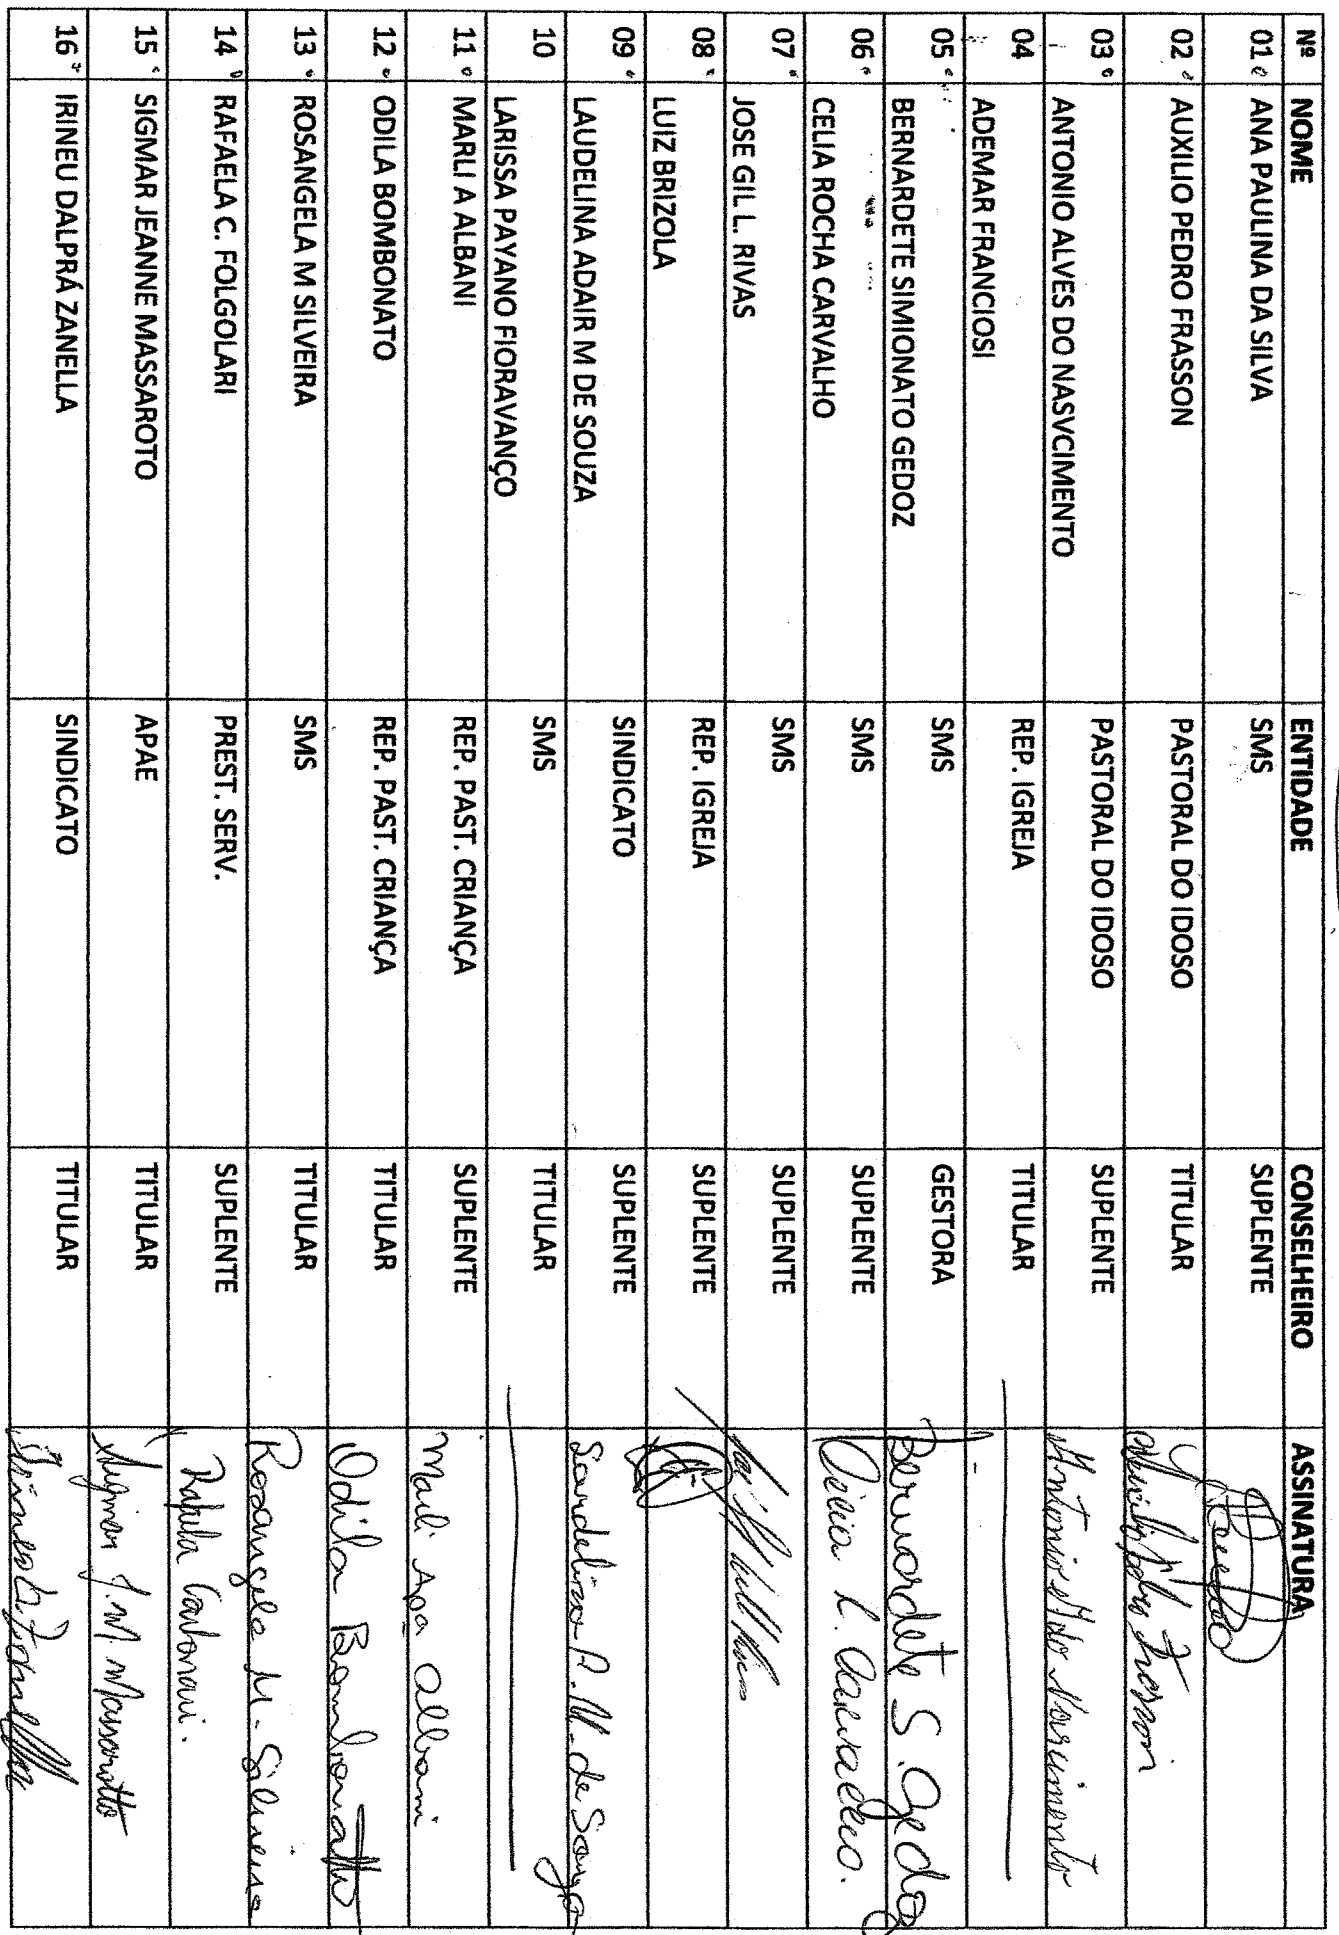 Nº NOME ENTIDADE CONSELHEIRO ASSINATURA
01 ANA PAULINA DA SILVA SMS SUPLENTE
02 AUXILIO PEDRO FRASSON PASTORAL DO IDOSO TITULAR Auxilio Pedro Frasson
03 ANTONIO ALVES DO NASVCIMENTO PASTORAL DO IDOSO SUPLENTE Antonio A do Nascimento
04 ADEMAR FRANCIOSI REP. IGREJA TITULAR
05 BERNARDETE SIMIONATO GEDOZ SMS GESTORA Bernardete S. Gedoz
06 CELIA ROCHA CARVALHO SMS SUPLENTE Célia R. Carvalho.
07 JOSE GIL L. RIVAS SMS SUPLENTE
08 LUIZ BRIZOLA REP. IGREJA SUPLENTE
09 LAUDELINA ADAIR M DE SOUZA SINDICATO SUPLENTE Laudelina A. M. de Souza
10 LARISSA PAYANO FIORAVANÇO SMS TITULAR
11 MARLI A ALBANI REP. PAST. CRIANÇA SUPLENTE Marli Apa Albani
12 ODILA BOMBONATO REP. PAST. CRIANÇA TITULAR Odila Bombonatto
13 ROSANGELA M SILVEIRA SMS TITULAR Rosangela M. Silveira
14 RAFAELA C. FOLGOLARI PREST. SERV. SUPLENTE Rafaela
15 SIGMAR JEANNE MASSAROTO APAE TITULAR Sigmar J. M. Massarotto
16 IRINEU DALPRÁ ZANELLA SINDICATO TITULAR Irineu D. Zanella